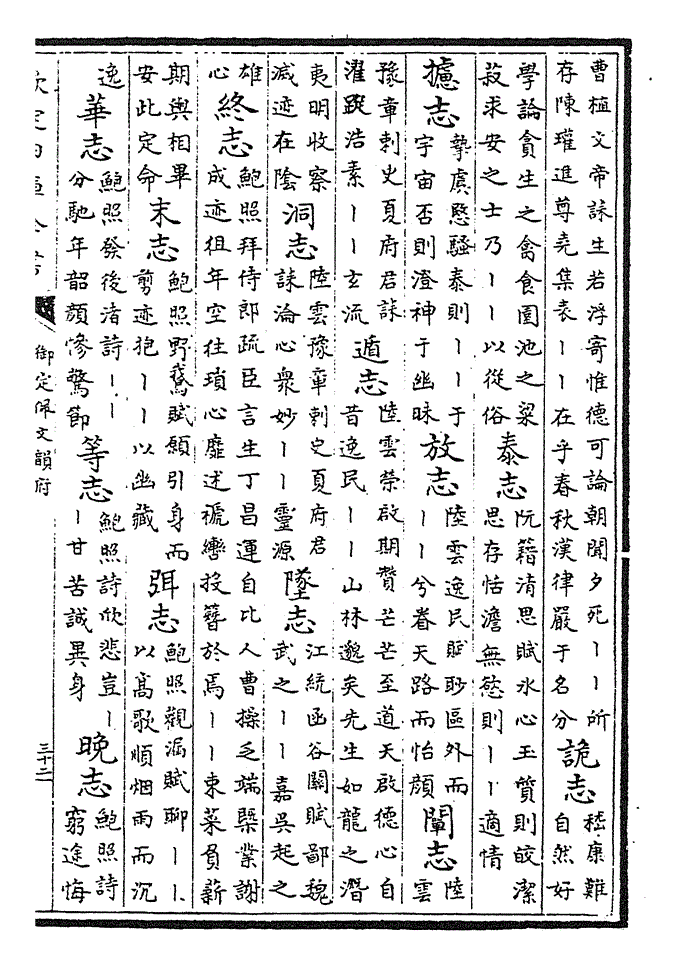 曹植文帝誄生若浮寄惟德可論朝聞夕死｜｜所
存陳瓘進尊堯集表｜｜在乎春秋漢律嚴于名分
詭志
嵇康難
自然好
學論貪生之禽食園池之粱
菽求安之士乃｜｜以從俗
泰志
阮籍清思賦氷心玉質則皎潔
思存恬澹無慾則｜｜適情
攄志
摯虞愍騷泰則｜｜于
宇宙否則澄神于幽昧
放志
陸雲逸民賦眇區外而
｜｜兮眷天路而怡顔
闡志
陸
雲
豫章刺史夏府君誄
濯跡浩素｜｜玄流
遁志
陸雲榮啟期贊芒芒至道天啟德心自
昔逸民｜｜山林邈矣先生如龍之潛
夷明收察
滅迹在陰
洞志
陸雲豫章刺史夏府君
誄淪心衆妙｜｜靈源
墜志
江統函谷關賦鄙魏
武之｜｜嘉吳起之
雄
心
終志
鮑照拜侍郎疏臣言生丁昌運自比人曹操乏端槩業謝
成迹徂年空往瑣心靡述褫轡投簪於焉｜｜束菜負薪
期與相畢
安此定命
末志
鮑照野鵞賦願引身而
剪迹抱｜｜以幽藏
弭志
鮑照觀漏賦聊｜｜
以髙歌順烟雨而沉
逸
華志
鮑照發後渚詩｜｜
分馳年韶顔慘驚節
等志
鮑照詩欣悲豈｜
｜甘苦誠異身
晩志
鮑照詩
窮途悔
欽定四庫全書
御定佩文韻府
三十二